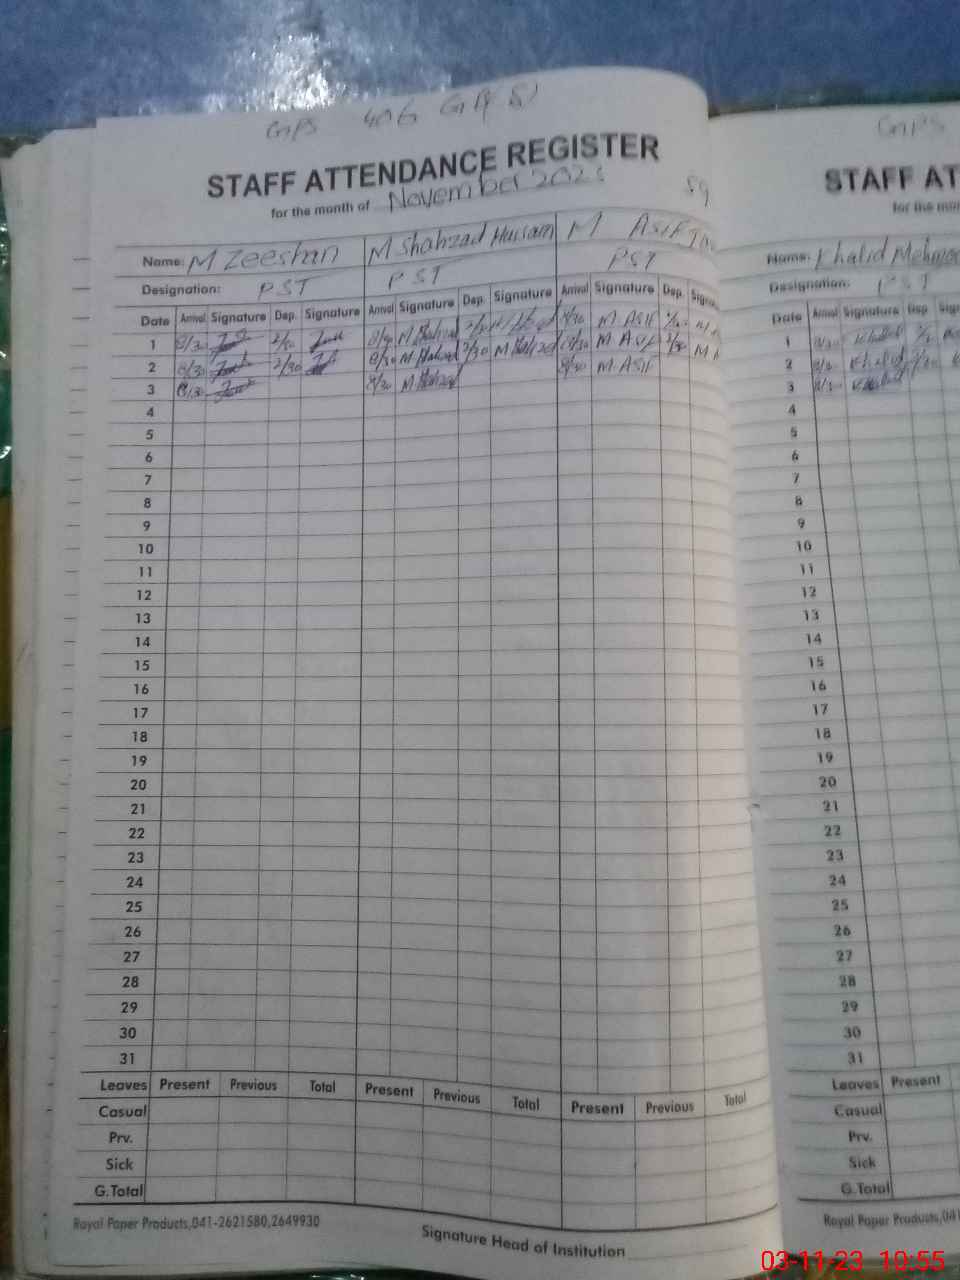 GPS 406 GB
STAFF ATTENDANCE REGISTER
for the month of November 2023
59
Name: M Zeeshan M Shahzad Hussain M Asif
Designation: PST PST PST
Date Arrival Signature Dep. Signature Arrival Signature Dep. Signature Arrival Signature Dep. Signa
1 8/30 2/30 8/30 M Shahzad 2/30 8/30 M ASIF 2/30
2 8/30 2/30 8/30 M Shahzad 2/30 M Shahzad 8/30 M ASIF 2/30 M A
3 8/30 8/30 M Shahzad 8/30 M ASIF
4
5
6
7
8
9
10
11
12
13
14
15
16
17
18
19
20
21
22
23
24
25
26
27
28
29
30
31
Leaves Present Previous Total Present Previous Total Present Previous Total
Casual
Prv.
Sick
G.Total
Royal Paper Products,041-2621580,2649930
Signature Head of Institution
GPS
STAFF AT
for the mon
Name: Khalid Mehmo
Designation: PST
Date Arrival Signature Dep Sig
1 8/30 Khalid
2 8/30 Khalid
3 8/30 Khalid
4
5
6
7
8
9
10
11
12
13
14
15
16
17
18
19
20
21
22
23
24
25
26
27
28
29
30
31
Leaves Present
Casual
Prv.
Sick
G.Total
Royal Paper Products,041
03-11-23 10:55